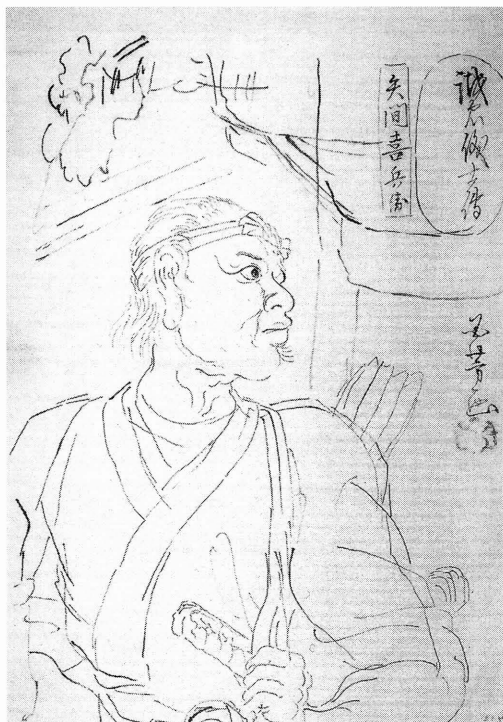 誠忠義士傳
矢間喜兵衛
国芳画